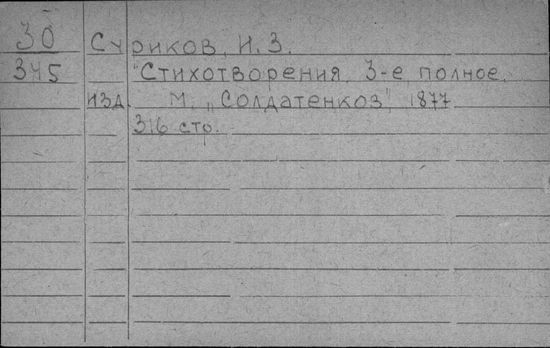 30 Суриков, И. З.
345 "Стихотворения. 3-е, полное,
изд. М. „Солдатенков" 1877
316 стр.